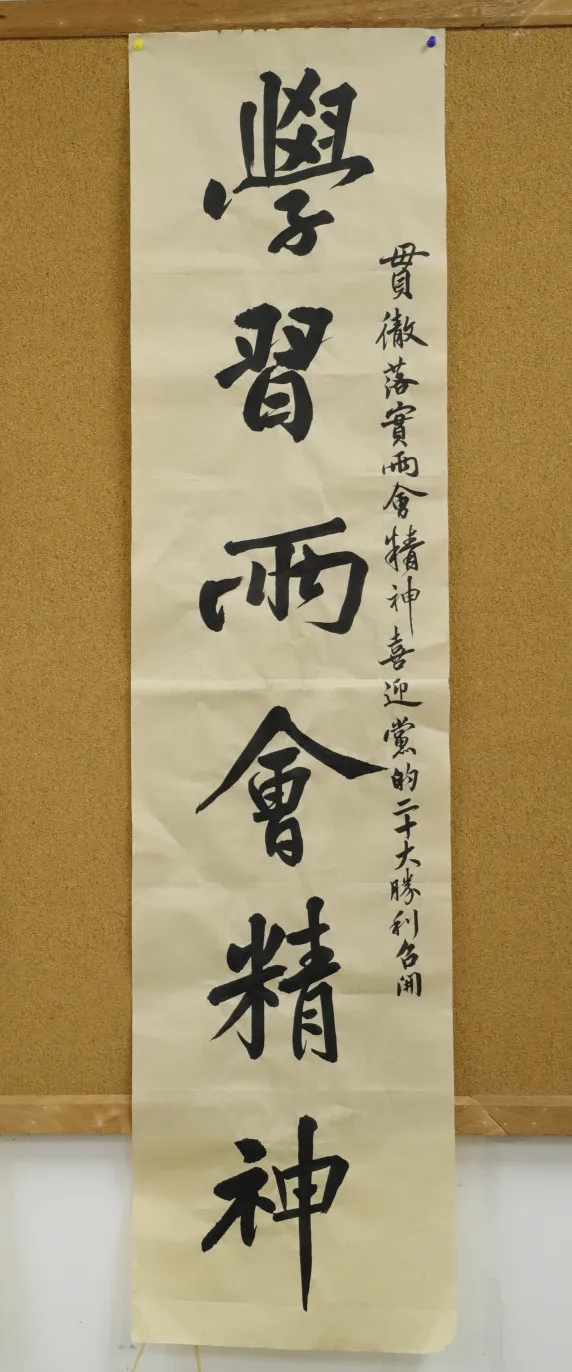 貫徹落實兩會精神喜迎黨的二十大勝利召開
學習兩會精神